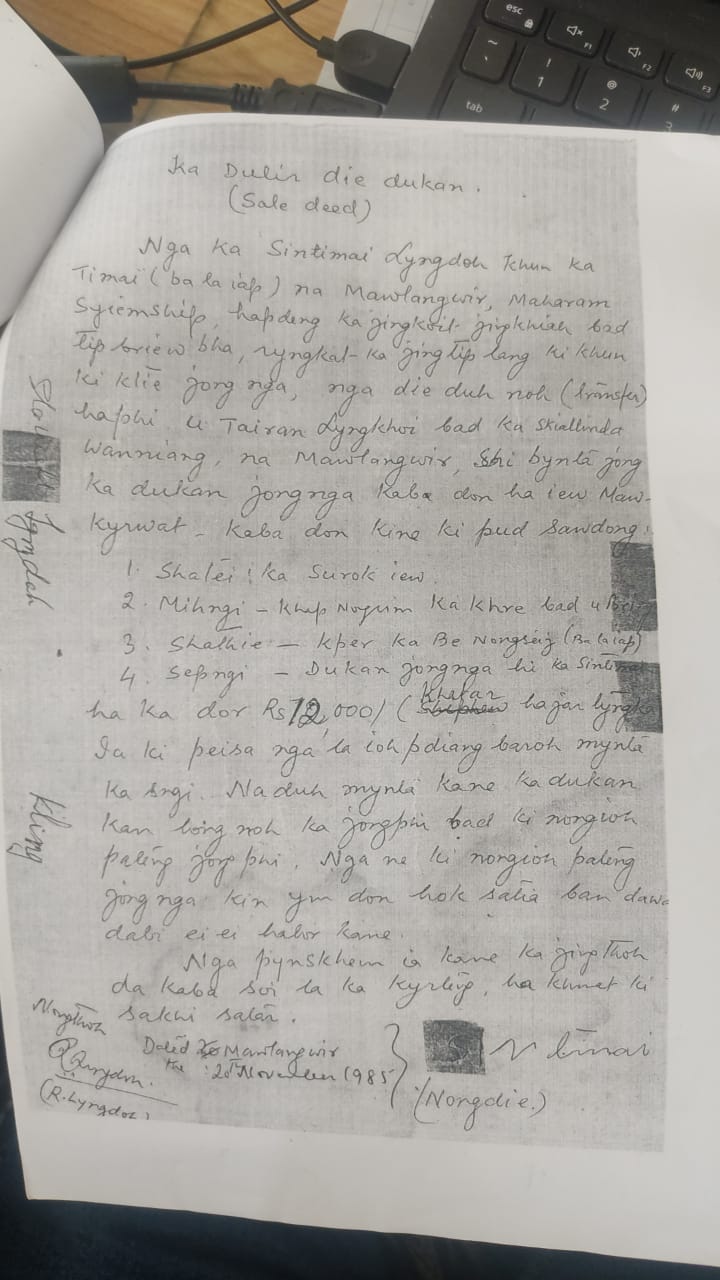 esc
F1
F2
F3
~
`
!
1
@
2
#
3
tab
Ka Dulir die dukan.
(Sale deed)
Nga Ka Sintimai Lyngdoh Khun ka
Timai (ba la iap) na Mawlangwir, Maharam
Syiemship, hapdeng ka jingkoit jingkhiah bad
tip briew bha, ryngkat ka jingtip lang ki khun
ki ksiew jong nga, nga die duh noh (transfer)
haphi U Tairan Lyngkhoi bad Ka Skiallinda
Wanniang, na Mawlangwir, Shi bynta jong
Ka dukan jongnga Kaba don ha iew Maw-
Kyrwat - Kaba don kine ki pud sawdong:
1. Shatei : Ka Surok iew.
2. Mihngi - Khap Nogrim Ka Khre bad u
3. Shathie - Kper Ka Be Nongseij (Ba la iap)
4. Sepngi - Dukan jongnga hi Ka
ha ka dor Rs 12,000/ ( Khatar hajar lyngka
Ia ki peisa nga la ioh pdiang baroh mynta
Ka sngi. Naduh mynta kane ka dukan
Kan long noh ka jongphi bad ki nongioh
pateng jong phi. Nga ne ki nongioh pateng
jong nga kin ym don hok satia ban dawa
dabi ei ei halor kane.
Nga pynskhem ia kane ka jingthoh
da kaba soi la ka kyrteng, ha khmat ki
sakhi salar.
Nongthoh
(R. Lyngdoh)
Dated Mawlangwir
the 20th November 1985
(Nongdie.)
Kling